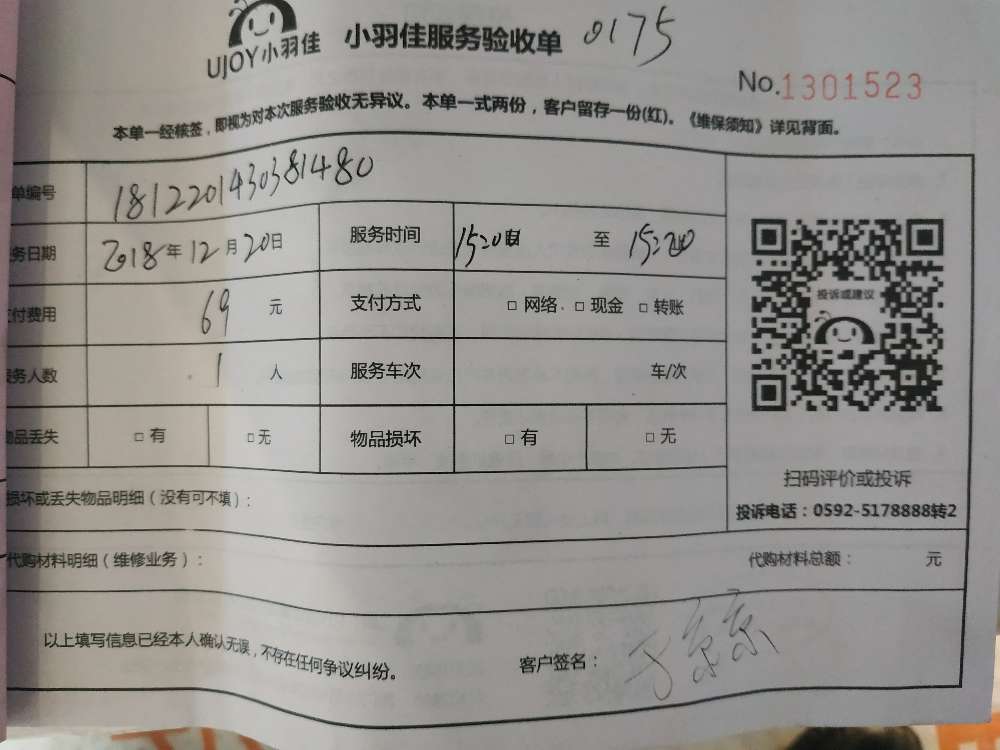 UJOY小羽佳 小羽佳服务验收单 0175
No.1301523
本单一经核签，即视为对本次服务验收无异议。本单一式两份，客户留存一份(红)。《维保须知》详见背面。
单编号 181220143038 1480
务日期 2018年12月20日 服务时间 至 15:20
付费用 69 元 支付方式 □ 网络 □ 现金 □ 转账
服务人数 1 人 服务车次 车/次
物品丢失 □ 有 □ 无 物品损坏 □ 有 □ 无
投诉或建议
扫码评价或投诉
投诉电话：0592-5178888转2
损坏或丢失物品明细（没有可不填）：
代购材料明细（维修业务）： 代购材料总额： 元
以上填写信息已经本人确认无误，不存在任何争议纠纷。 客户签名：